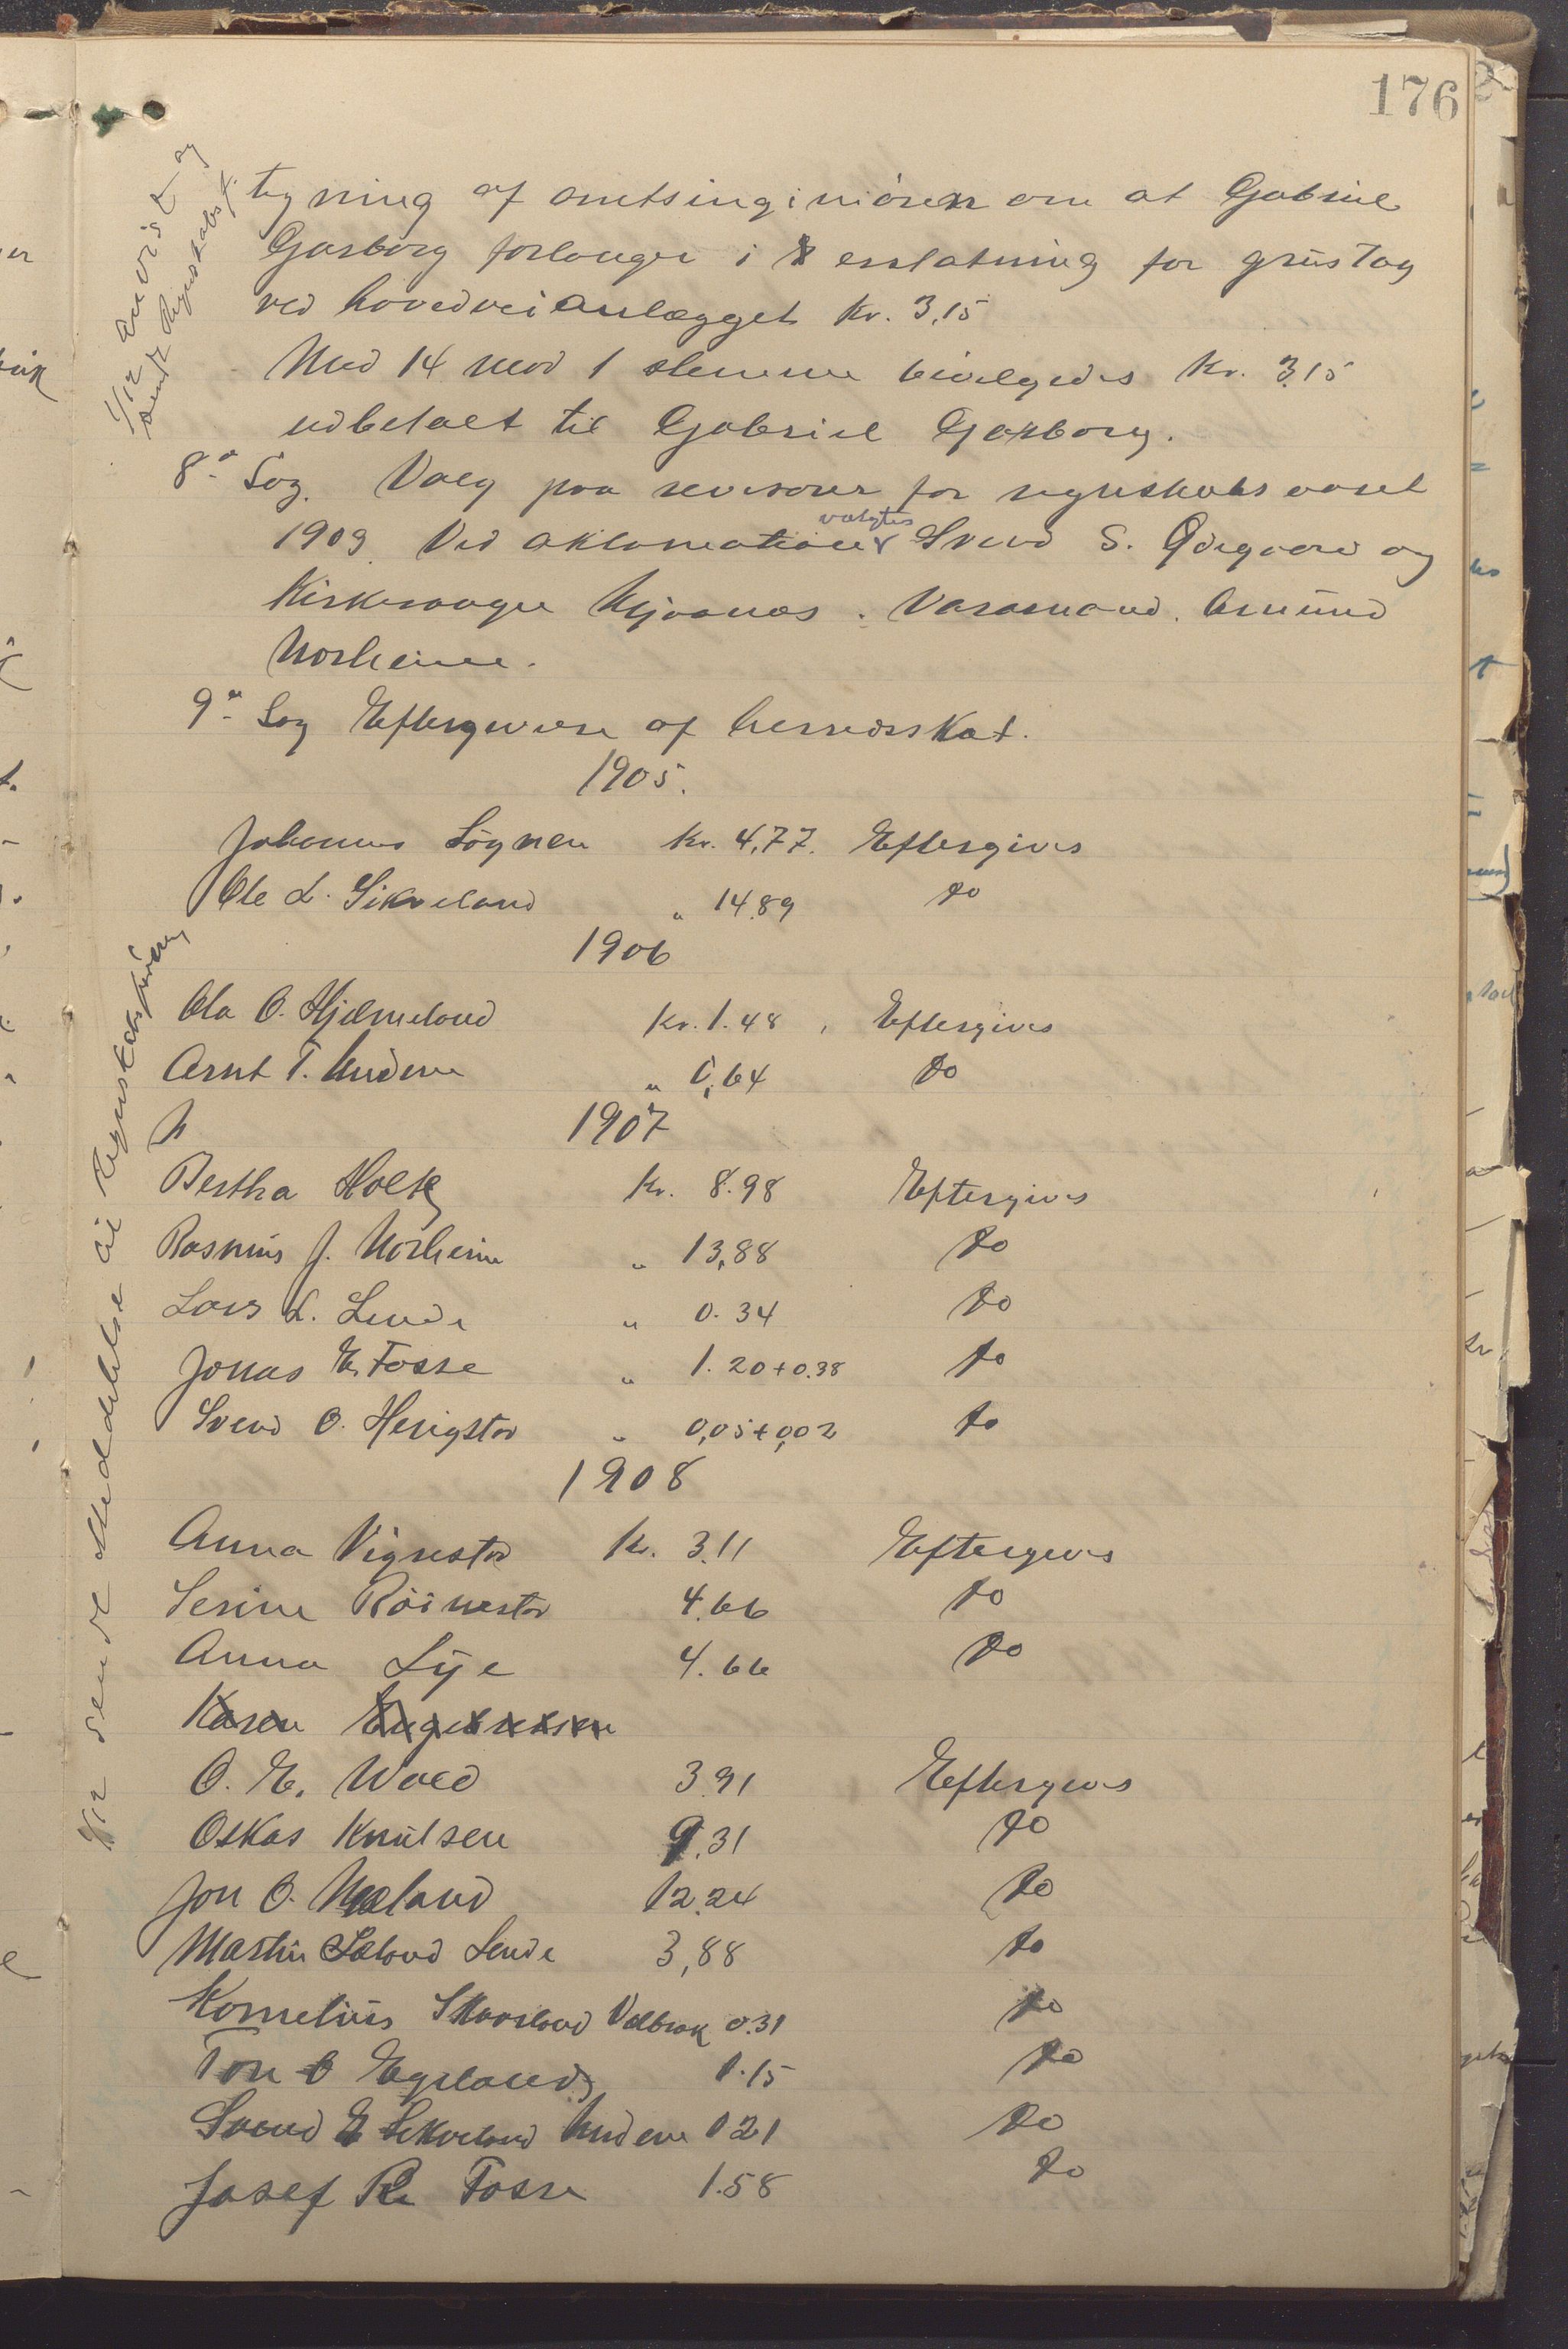 176
tegning af amtsingeniören om at Gabriel
Garborg forlanger i erstatning for grüstag
ved hovedveianlægget Kr. 3,15
Med 14 mod 1 stemme bevilgedes Kr. 3.15
udbetalt til Gabriel Garborg.
8de Sag. Valg paa revisorer for regnskabsaaret
1909. Ved aklamation valgtes Svend S. Ödegaard og
Kirkesanger Mjaanes. Varamand. Amünd
Norheim.
9de Sag Eftergivelse af herredsskat.
1905.
Johannes Lögnen Kr. 4,77. Eftergives
Ole L. Sikveland " 14.89 do
1906
Ola O. Hjelmeland Kr. 1.48, Eftergives
Arnt T. Undem " 0,64 do
1907
Bertha Holtz Kr. 8.98 Eftergives
Rasmüs J. Norheim " 13,88 do
Lars L. Lende " 0.34 do
Jonas E. Fosse " 1.20+0.38 do
Svend O. Herigstad " 0,05+0,02 do
1908
Anna Vignestad Kr. 3.11 Eftergives
Serine Röinestad 4.66 do
Anna Lye 4.66 do
Karen Engebretsen
O. E. Wold 3.91 Eftergives
Oskar Knütsen 9.31 do
Jon O. Mæland 12.24 do
Martin Sæland Lende 3,88 do
Kornelius Skaarland Vælbræk 0.31 do
Tore O Egeland 1.15 do
Svend E Sikveland Undem 0 21 do
Josef R. Fosse 1.58 do
1/12 anvist og
sendt Regnskabsf.
1/12 sendt Meddelelse til Regnskabsföreren